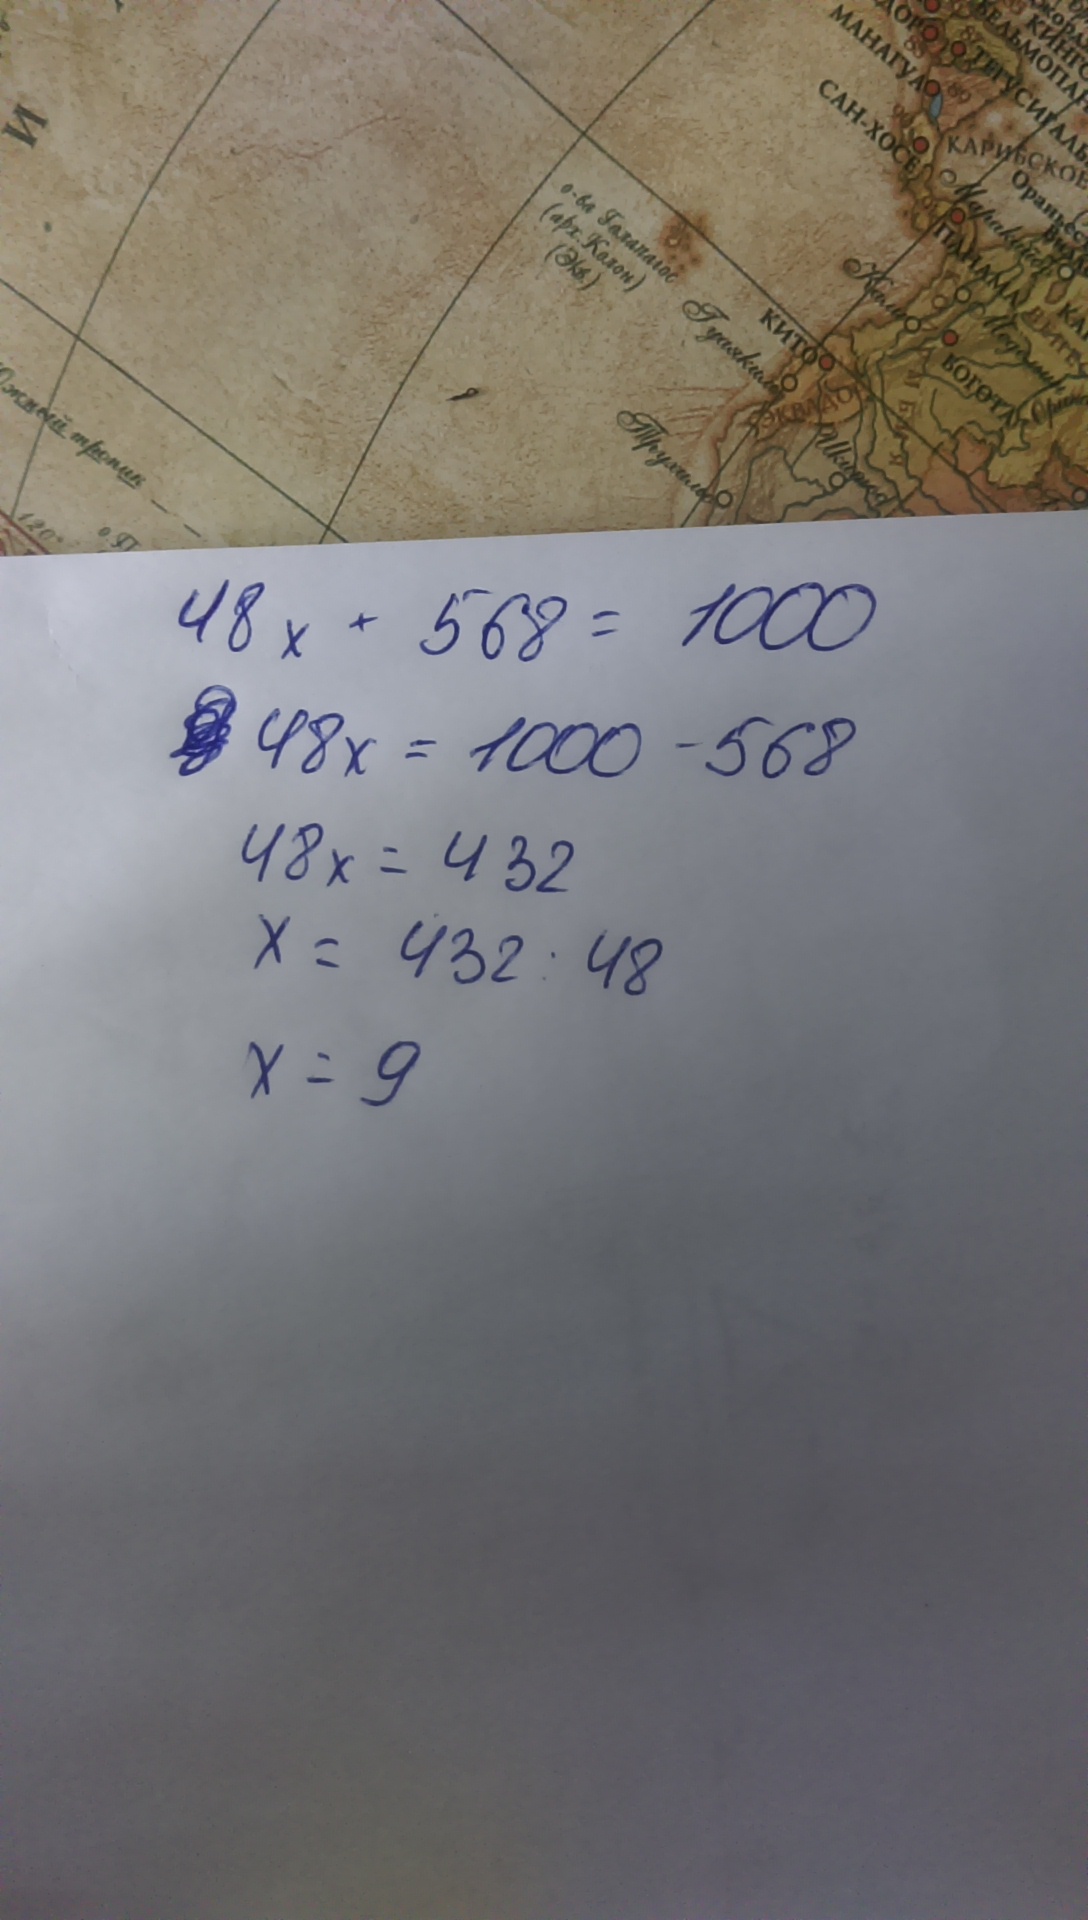 И
МАНАГУА
САН-ХОСЕ
КАРИБСКОЕ
о-ва Галапагос
(арх. Колон)
(Экв.)
ПАНАМА
КИТО
Гуаякиль
БОГОТА
ЭКВАДОР
Трухильо
Южный тропик
120°
о.П
48x + 568 = 1000
48x = 1000 - 568
48x = 432
x = 432 : 48
x = 9